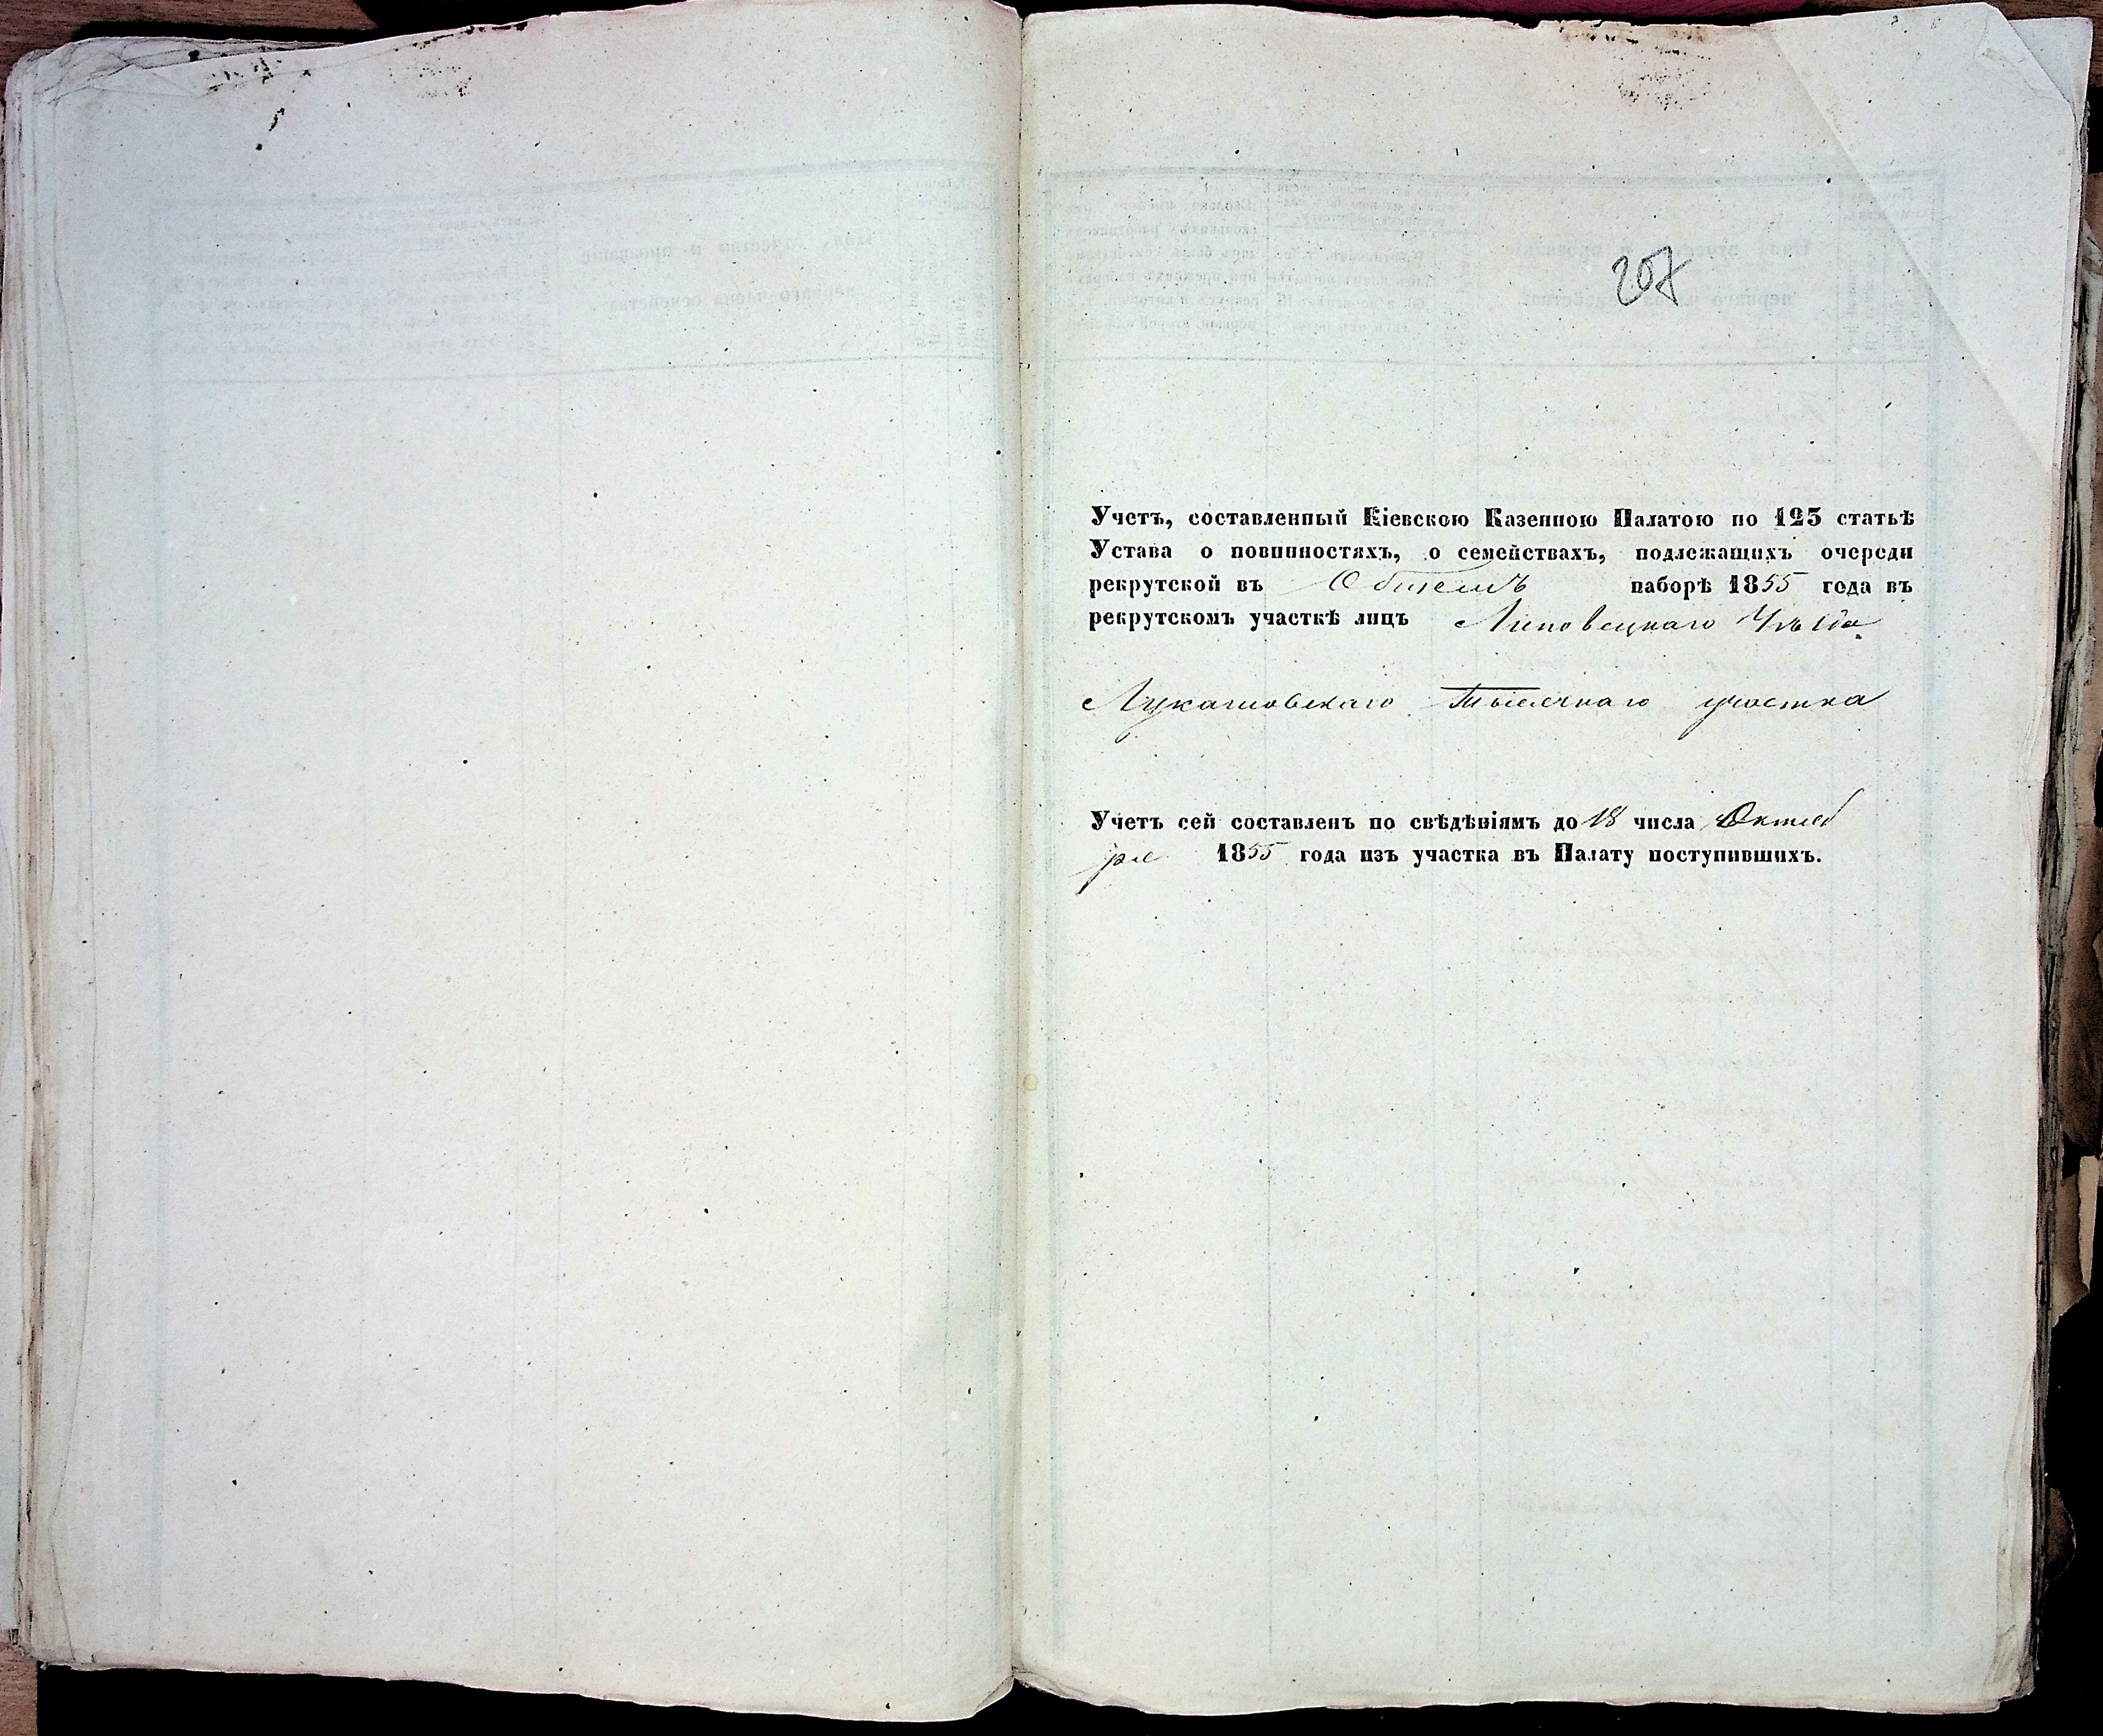 207
Учетъ, составленный Кіевскою Казенною Палатою по 125 статьѣ
Устава о повинностяхъ, о семействахъ, подлежащихъ очереди
рекрутской въ Общемъ наборѣ 1855 года въ
рекрутскомъ участкѣ лицъ Липовецкаго Уѣзда
Лукашовскаго Тысячнаго участка
Учетъ сей составленъ по свѣдѣніямъ до 18 числа Октяб
ря 1855 года изъ участка въ Палату поступившихъ.